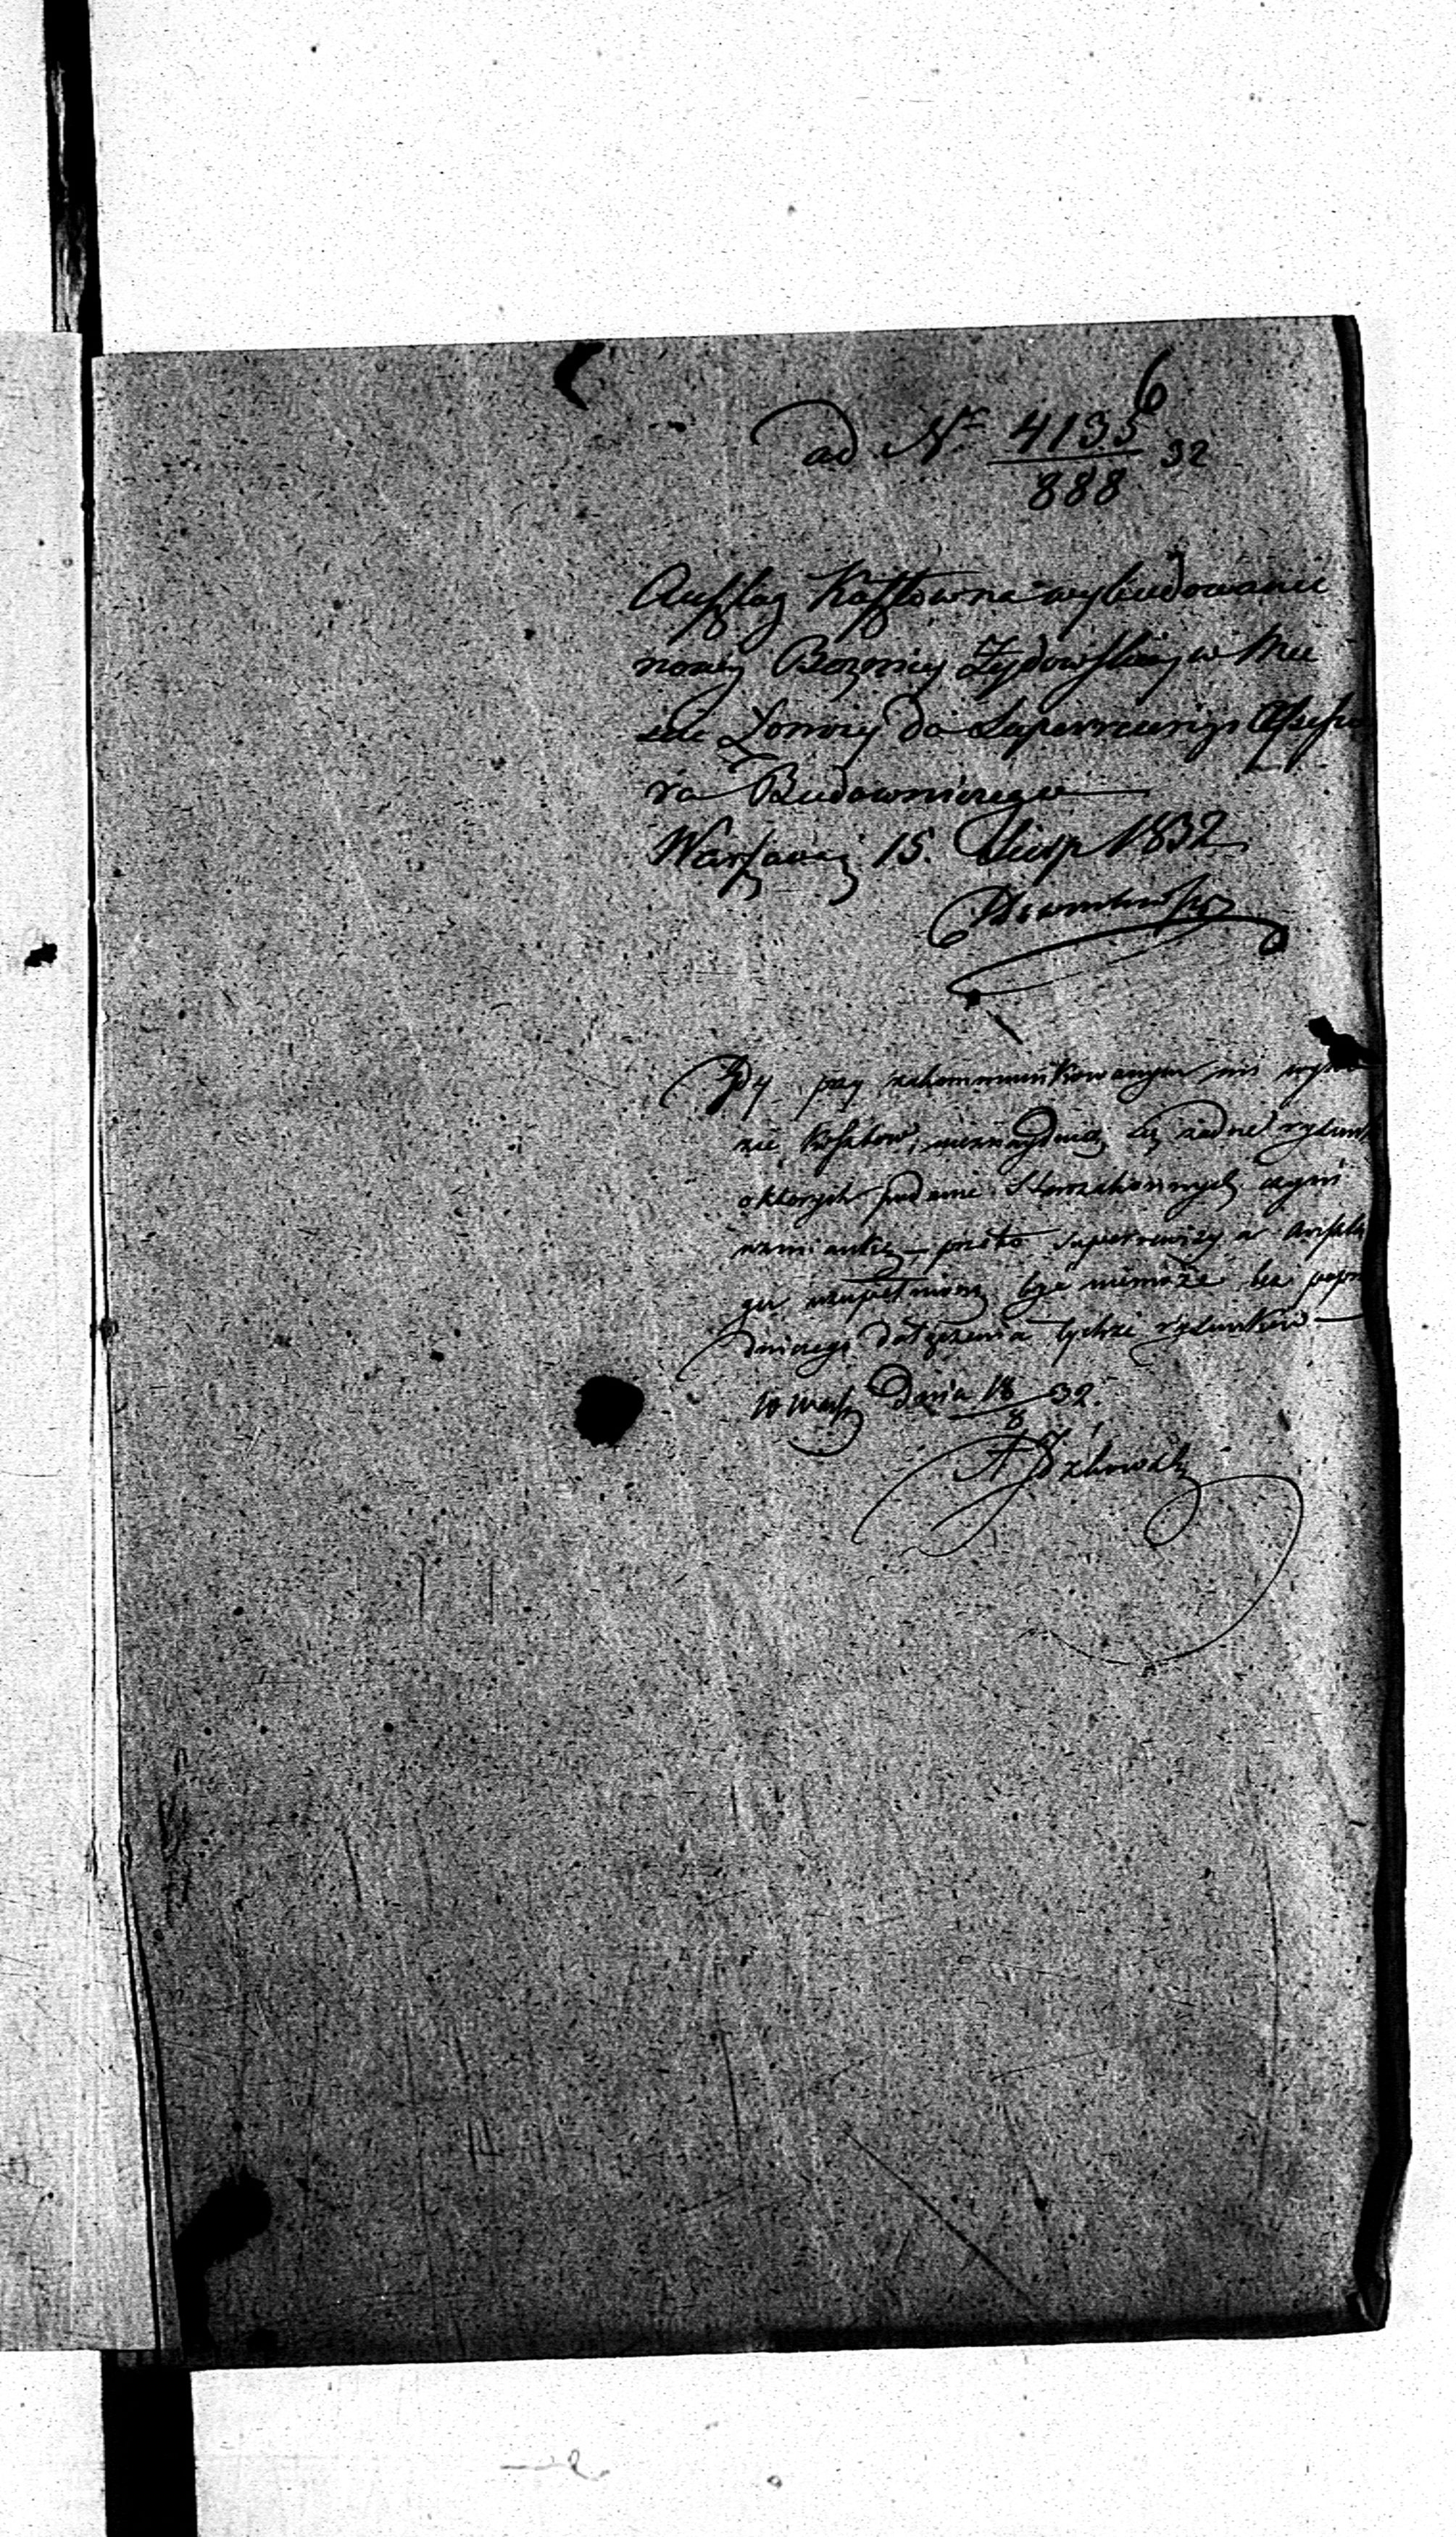 6
ad Nr 4135/888 32
Anszlag Kosztow na wybudowanie
nowey Boznicy Żydowskiey w Mie
scie do Superrewizyi Assesso
ra Budowniczego
Warszawa 15. Sierp 1832
Gdy przy zakommunikowanym mi
zie Kosztow, nieznayduią się żadne rysunk
o ktorych podanie Starozakonnych czyni
wzmiankę – przeto Superrewizy a Anszla
gu uzupełnioną być niemoże bez poprze
dniczego dołączenia tychże rysunków –
w Warsz Dnia 18/8 32.